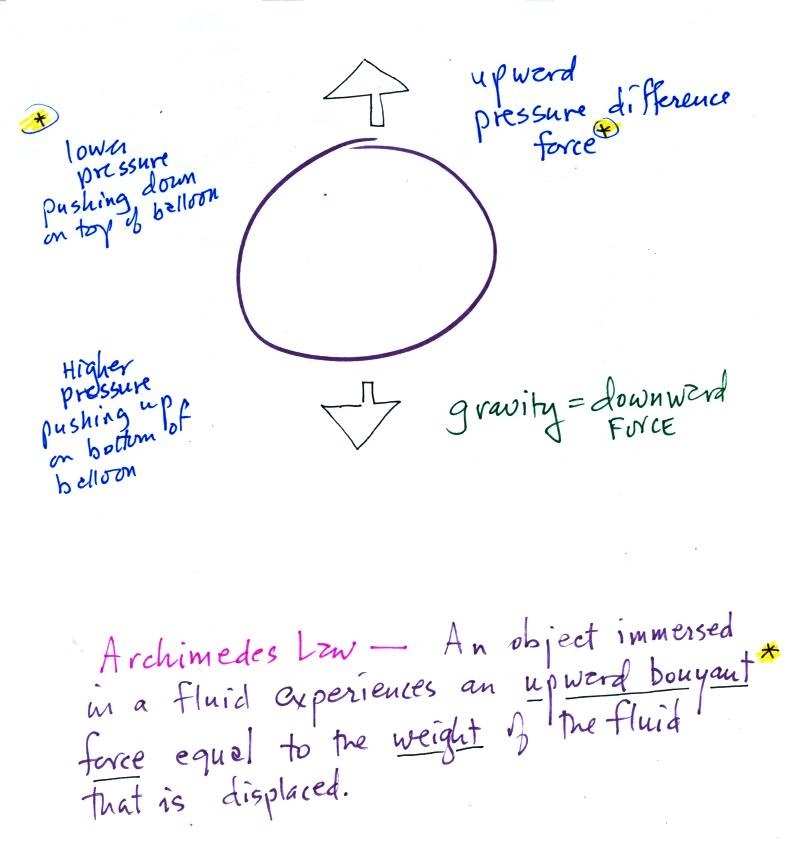 *
lower
pressure
pushing down
on top of balloon
upward
pressure difference
force *
Higher
pressure
pushing up
on bottom of
balloon
gravity = downward
FORCE
Archimedes Law — An object immersed
in a fluid experiences an upward bouyant *
force equal to the weight of the fluid
that is displaced.